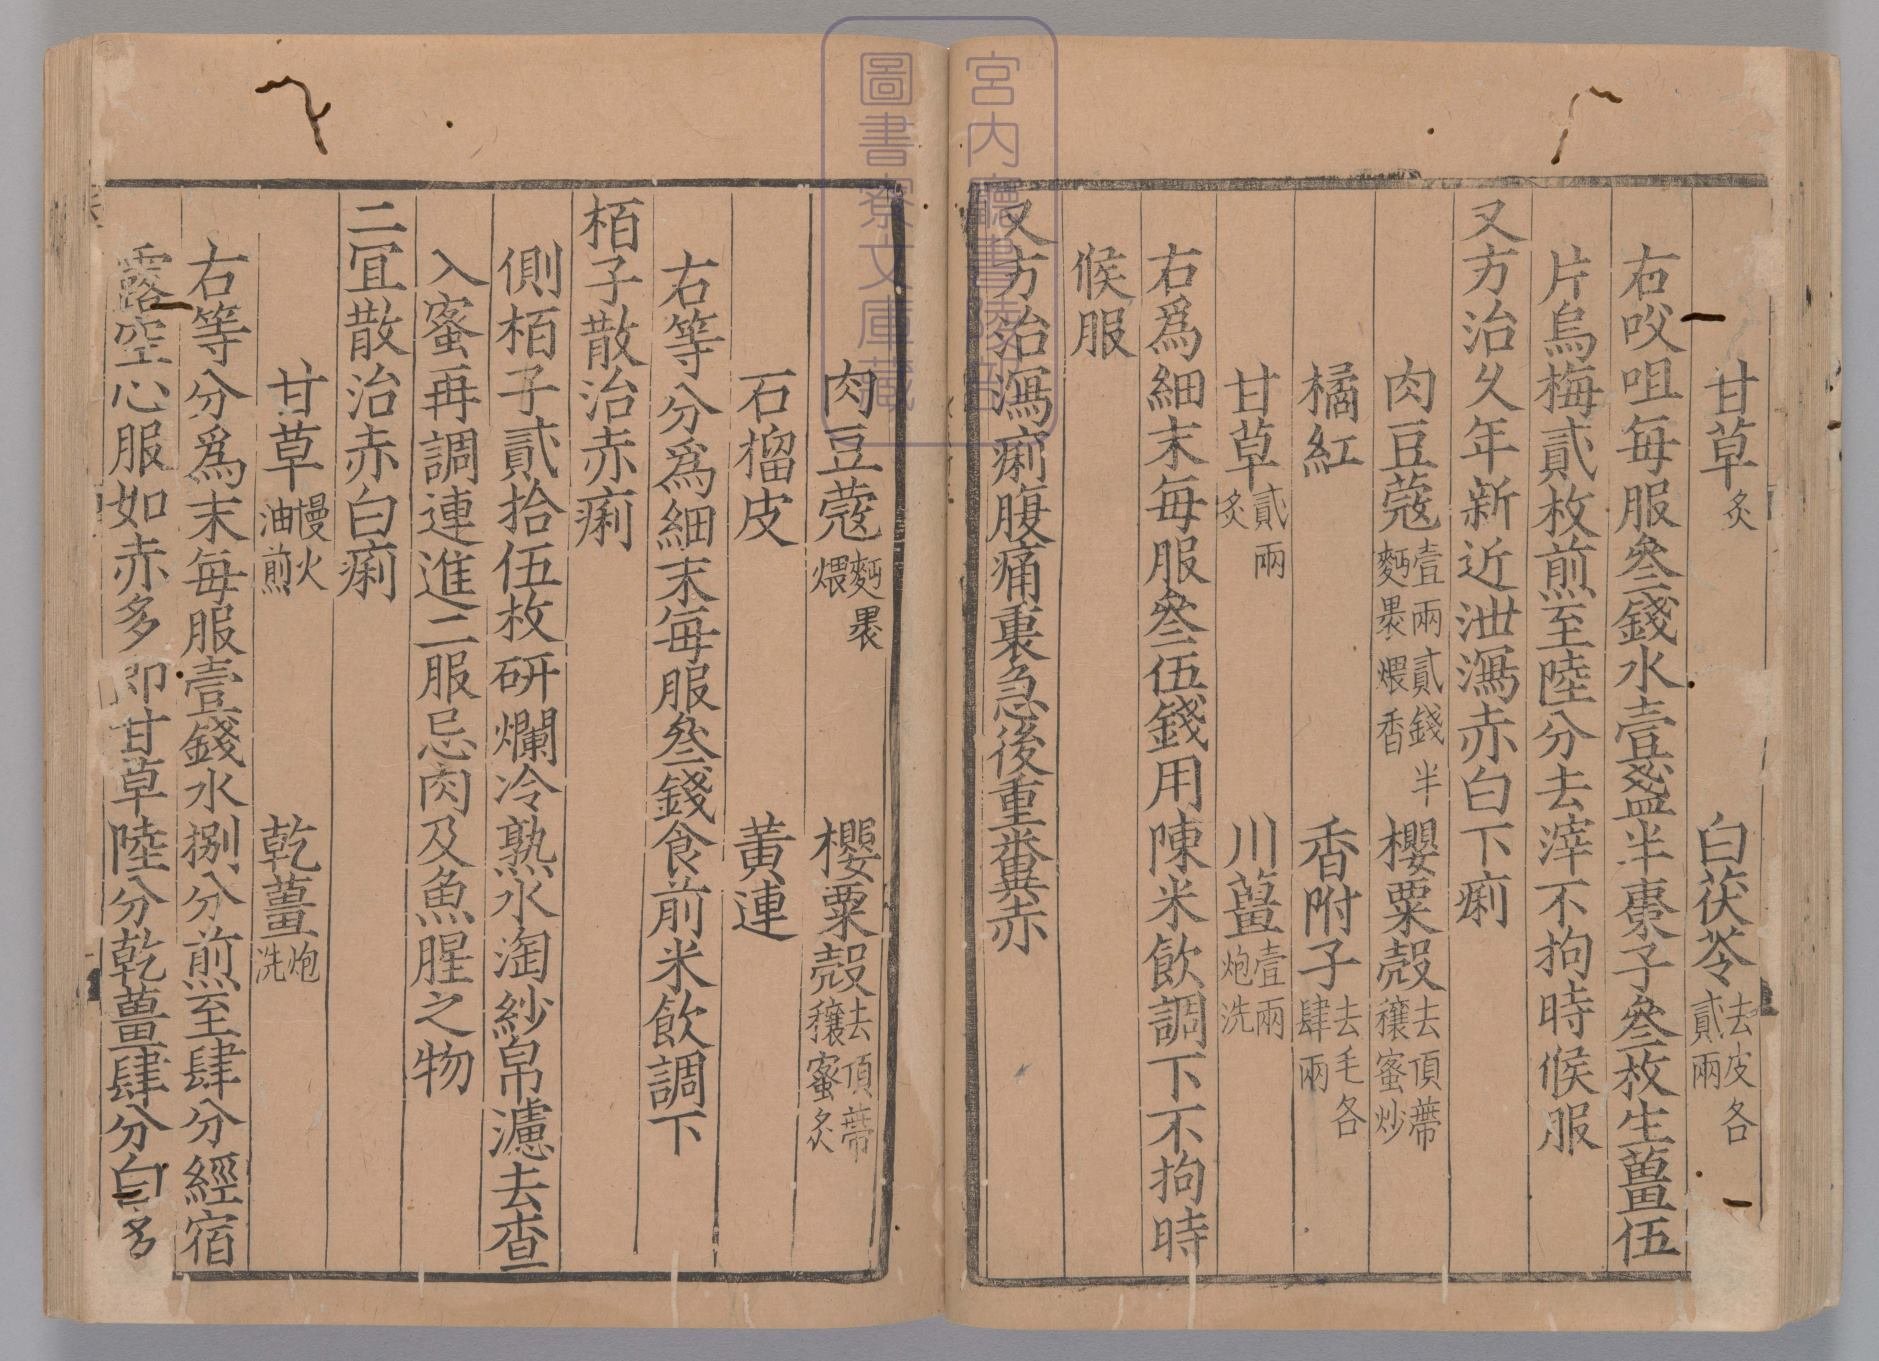 甘草炙 白茯苓去皮各貳兩
右㕮咀每服叄錢水壹盞半棗子叄枚生薑伍
片烏梅貳枚煎至陸分去滓不拘時候服
又方治久年新近泄瀉赤白下痢
肉豆蔻壹兩貳錢半麪褁煨香 櫻粟殻去頂蔕穰蜜炒
橘紅 香附子去毛各肆兩
甘草貳兩炙 川薑壹兩炮洗
右爲細末每服叄伍錢用陳米飲調下不拘時
候服
又方治瀉痢腹痛裏急後重糞赤
肉豆蔻麪褁煨 櫻粟殻去頂蔕穰蜜炙
石榴皮 黄連
右等分爲細末每服叄錢食前米飲調下
栢子散治赤痢
側栢子貳拾伍枚研爛冷熟水淘紗帛濾去查
入蜜再調連進二服忌肉及魚腥之物
二冝散治赤白痢
甘草慢火油煎 乾薑炮洗
右等分爲末每服壹錢水捌分煎至肆分經宿
露空心服如赤多即甘草陸分乾薑肆分白多
宮内廳書陵部
圖書寮文庫藏